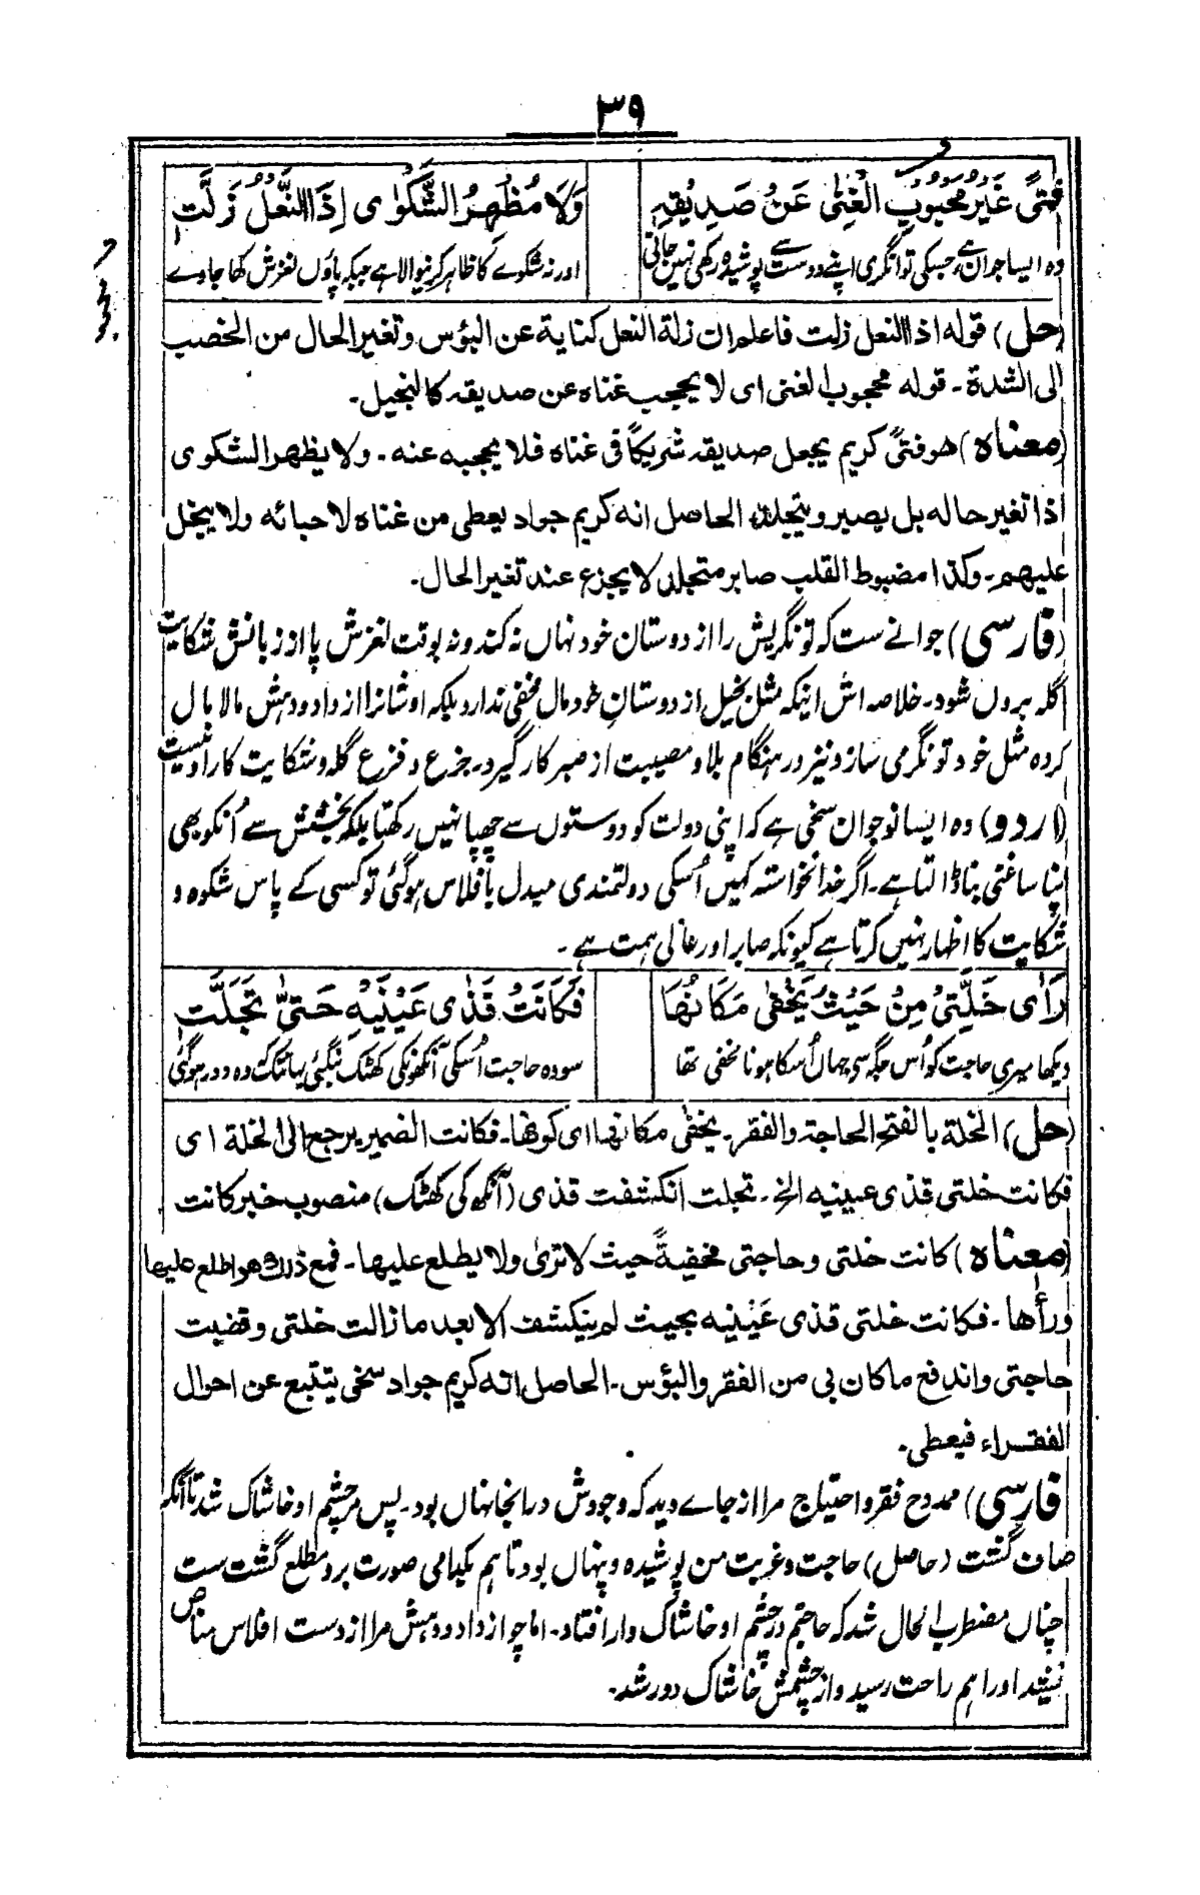 ۳۹
فَتًى غَيْرُ مَحْجُوبِ الْغِنٰى عَنْ صَدِيْقِهٖ
وَلَا مُظْهِرُ الشَّكْوٰى إِذَا النَّعْلُ زَلَّتِ
وہ ایسا جوان ہے جسکی توانگری اپنے دوست سے پوشیدہ رکھی نہیں جاتی
اور نہ شکوے کا ظاہر کرنیوالا ہے جبکہ پاؤں لغزش کھا جاوے
(حل) قوله اذا النعل زلت فاعلم ان زلة النعل كناية عن البؤس وتغير الحال من الخصب
الى الشدة۔ قوله محجوب الغنى اى لا يحجب غناه عن صديقه كالبخيل۔
(معناه) هو فتىً كريم يجعل صديقه شريكاً فى غناه فلا يحجبه عنه۔ ولا يظهر الشكوى
اذا تغير حاله بل يصبر ويتجلد۔ الحاصل انه كريم جواد يعطى من غناه لاحبائه ولا يبخل
عليهم۔ وكذا مضبوط القلب صابر متجلد لا يجزع عند تغير الحال۔
(فارسی) جوانے ست کہ تونگریش را از دوستان خود نہاں نہ کند و نہ بوقت لغزش پا از زبانش شکایت
گلہ بروں شود۔ خلاصہ اش اینکہ مثل بخیل از دوستانِ خود مال مخفی ندارد بلکہ اوشانرا از داد و دہش مالا مال
کردہ مثل خود تونگر می سازد و نیز در ہنگام بلا و مصیبت از صبر کار گیرد۔ جزع و فزع گلہ و شکایت کار او نیست
(اردو) وہ ایسا نوجوان سخی ہے کہ اپنی دولت کو دوستوں سے چھپا نہیں رکھتا بلکہ بخشش سے اُنکو بھی
اپنا سا غنی بنا ڈالتا ہے۔ اگر خدانخواستہ کہیں اُسکی دولتمندی مبدل بافلاس ہو گئی تو کسی کے پاس شکوہ و
شکایت کا اظہار نہیں کرتا ہے کیونکہ صابر اور عالی ہمت ہے۔
رَأٰى خَلَّتِىْ مِنْ حَيْثُ يَخْفٰى مَكَانُهَا
فَكَانَتْ قَذٰى عَيْنَيْهِ حَتّٰى تَجَلَّتِ
دیکھا میری حاجت کو اُس جگہ سے جہاں اُسکا ہونا مخفی تھا
سو وہ حاجت اُسکی آنکھونکی کھٹک بنگئی یہانتک کہ وہ دور ہو گئی
(حل) الخلة بالفتح الحاجة والفقر۔ يخفى مكانها اى كونها۔ فكانت الضمير يرجع الى الخلة اى
فكانت خلتى قذى عينيه الخ۔ تجلت انكشفت قذى (آنکھ کی کھٹک) منصوب خبر كانت
(معناه) كانت خلتى وحاجتى مخفيةً حيث لا ترى ولا يطلع عليها۔ فمع ذلك هو اطلع عليها
ورأها۔ فكانت خلتى قذى عَيْنيه بحيث لم ينكشف الا بعد ما زالت خلتى وقضيت
حاجتى واندفع ما كان بى من الفقر والبؤس۔ الحاصل انه كريم جواد سخى يتتبع عن احوال
الفقراء فيعطى۔
فارسی) ممدوح فقر و احتیاج مرا از جاے دید کہ وجودش در آنجا نہاں بود۔ پس در چشم او خاشاک شد تا آنکہ
صاف گشت (حاصل) حاجت و غربت من پوشیدہ و پنہاں بود تا ہم بکدامی صورت برو مطلع گشت ست
چناں مضطرب الحال شد کہ حاجتم در چشم او خاشاک وار افتاد۔ اما چو از داد و دہش مرا از دست افلاس مناص
او را ہم راحت رسید و از چشمش خاشاک دور شد۔